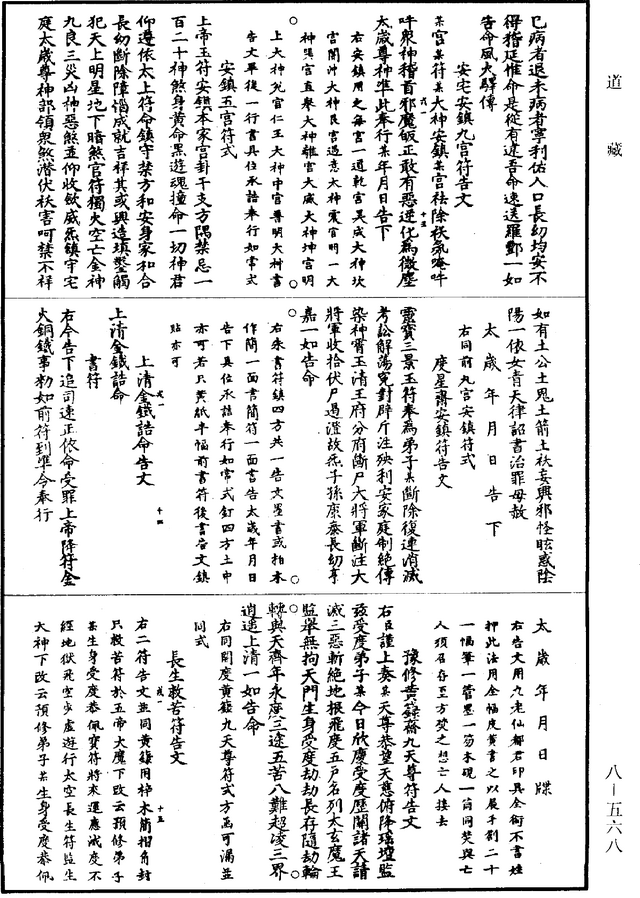 道藏
已病者退未病者寧利佑人口長幼均安不
得稽延惟命是從有違吾命速送羅酆一如
告命風火驛傳
安宅安鎮九宮符告文
某宮某符某大神安鎮某宮祛除祅氛唵吽
吽眾神稽首邪魔皈正敢有惡逆化為微塵
太歲尊神準此奉行某年月日告下
右安鎮用之每宮一道乾宮吳成大神坎
宮閻沖大神艮宮過意大神震宮明一大
神巽宮直舉大神離宮大威大神坤宮明
上大神兌宮仁王大神中宮尊明大神書
告文畢後一行書具位承誥奉行如常式
安鎮五宮符式
上帝玉符安鎮本家宮卦干支方隅禁忌一
百二十神煞身黃命黑遊魂撞命一切神君
仰遵依太上符命鎮守禁方和安身家和合
長幼斷除障惱成就吉祥其或興造填鑿觸
犯天上明星地下暗煞官符獨火空亡金神
九良三災凶神惡煞並仰收斂威炁鎮守宅
庭太歲尊神部領眾煞潛伏秋害呵禁不祥
如有土公土鬼土箭土祅妄興邪怪眩惑陰
陽一依女青天律詔書治罪毋赦
太歲年月日告下
右同前九宮安鎮符式
度星齋安鎮符告文
靈寶三景玉符奉為弟子某斷除復連消滅
考訟解蕩冤對辟斥注殃利安家庭制絕傳
染神霄玉清王府分府斷尸大將軍斷注大
將軍收拾伏尸過澄故炁子孫康泰長幼享
嘉一如告命
右朱書符鎮四方共一告文墨書或柏木
作簡一面書簡符一面書告太歲年月日
告下具位承誥奉行如常式釘四方土中
亦可若只黃紙半幅前書符後書告文鎮
貼亦可
上清金鐵誥命告文
上清金鐵誥命
書符
右令告下追司速正依命受罪上帝降符金
火銅鐵事物如前符到準令奉行
太歲年月日牒
右告文用九老仙都君印具全銜不書姓
押此法用全幅皮黃書之以晨千割二十
一幅筆一管墨一笏木硯一筒同焚與亡
人須召存至方焚之想亡人接去
豫修黃籙齋九天尊符告文
右臣謹上奏某天尊恭望天慈俯降瑤壇監
茲受度弟子某今日欣慶受度歷關諸天請
滅三惡斬絕地根飛度五戶名列太玄魔王
監舉無拘天門生身受度劫劫長存隨劫輪
轉與天齊年永度三途五苦八難超淩三界
逍遙上清一如告命
右同開度黃籙九天尊符式方函可滿並
同式
長生救苦符告文
右二符告文並同黃籙用梓木簡相角封
只救苦符於五帝大魔下改云預修弟子
某生身受度恭佩寶符將來運應滅度不
經地獄飛空步虛遊行太空長生符監生
大神下改云預修弟子某生身受度恭佩
八—五六八